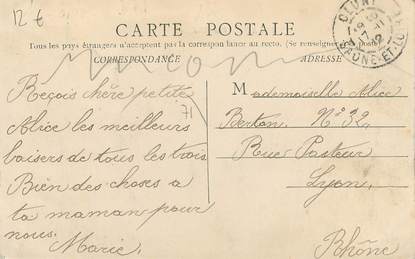 12 €
CARTE POSTALE
Tous les pays étrangers n'acceptent pas la correspondance au recto. (Se renseigner
CORRESPONDANCE
ADRESSE
CLUNY
SAONE-ET-LOIRE
71
Reçois chère petite
Alice les meilleurs
baisers de tous les trois
Bien des choses a
ta maman pour
nous.
Marie.
Mademoiselle Alice
Berton. N° 32.
Rue Pasteur
Lyon.
Rhône